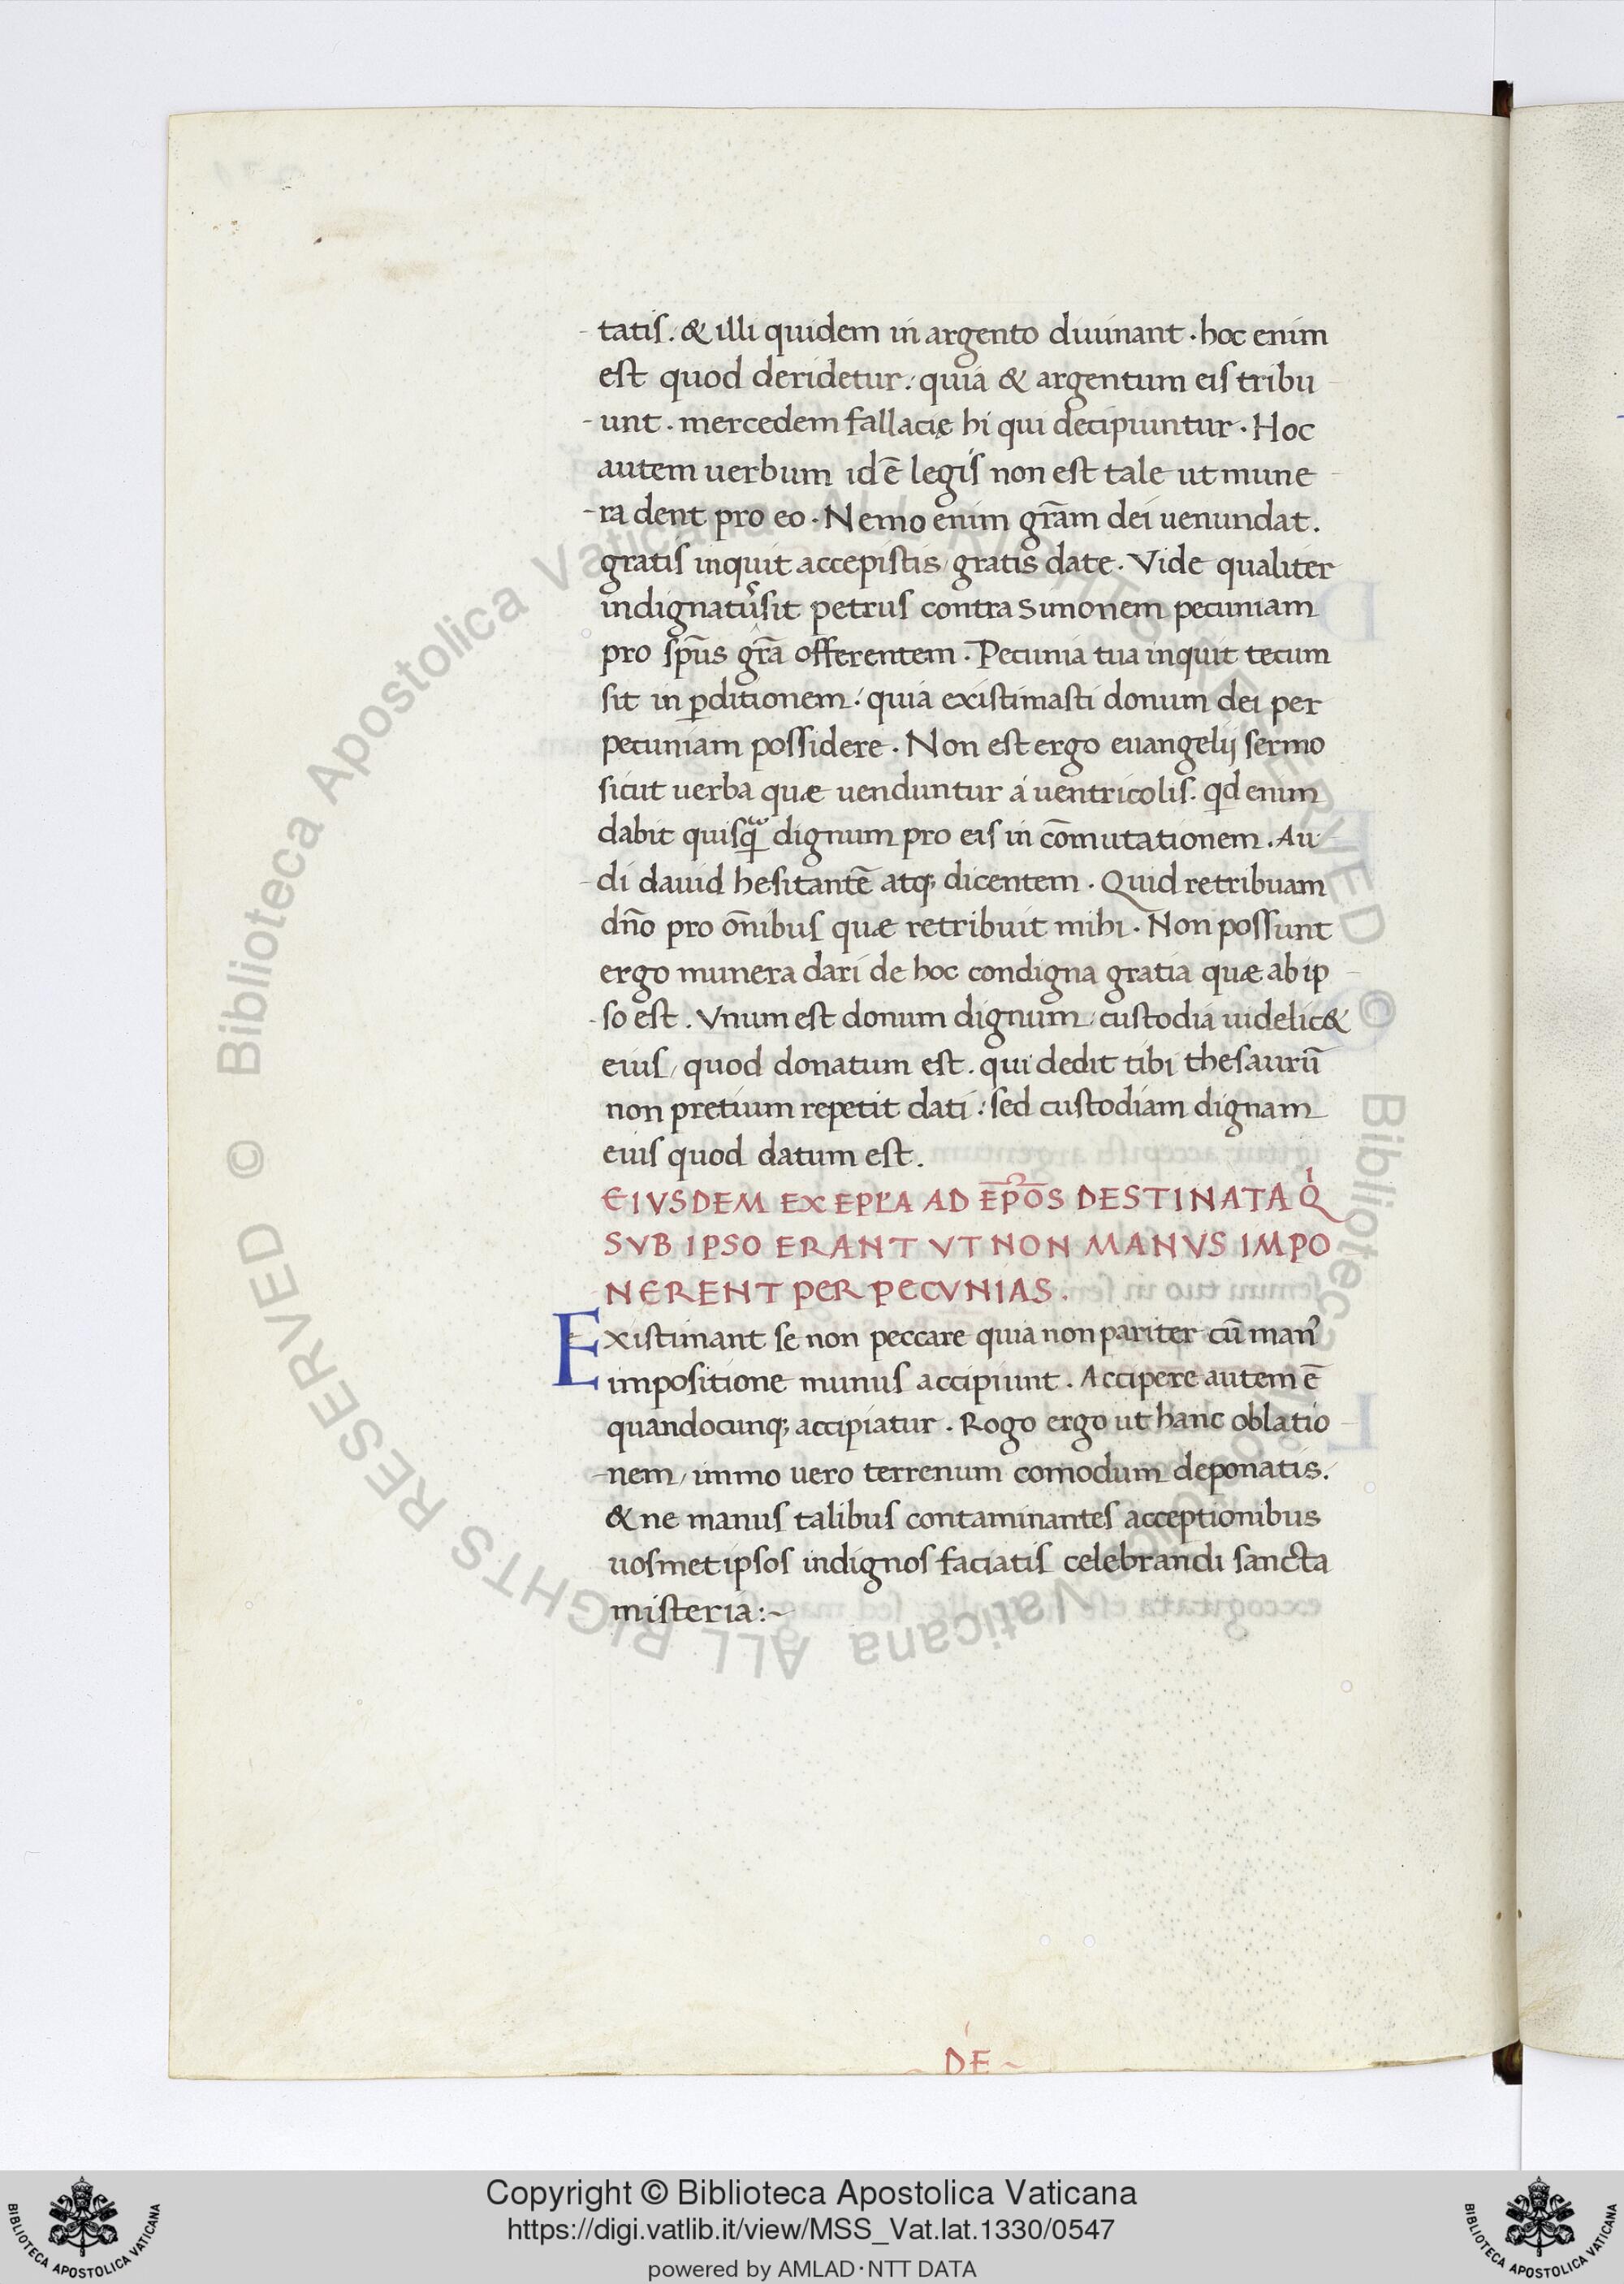 tatis. & illi quidem in argento diuinant. hoc enim
est quod deridetur. quia & argentum eis tribu
unt. mercedem fallacię hi qui decipiuntur. Hoc
autem uerbum id ē legis non est tale ut mune
ra dent pro eo. Nemo enim grām dei uenundat.
gratis inquit accepistis / gratis date. Vide qualiter
indignatus sit petrus contra Simonem pecuniam
pro sp̄us grā offerentem. Pecunia tua inquit tecum
sit in ꝑditionem: quia existimasti donum dei per
pecuniam possidere. Non est ergo euangelij sermo
sicut uerba quæ uenduntur a uentricolis. qd enim
dabit quisqȝ dignum pro eis in cōmutationem. Au
di dauid hesitantē atq; dicentem. Quid retribuam
dn̄o pro on̄ibus quæ retribuit mihi. Non possunt
ergo munera dari de hoc condigna gratia quæ ab ip
so est. Vnum est donum dignum / custodia uidelic&
eius / quod donatum est. qui dedit tibi thesaurū
non pretium repetit dati: sed custodiam dignam
eius quod datum est.
EIVSDEM EX EPL'A AD EP̄OS DESTINATA Qi
SVB IPSO ERANT VT NON MANVS IMPO
NERENT PER PECVNIAS.
Existimant se non peccare quia non pariter cū man'
impositione munus accipiunt. Accipere autem ē
quandocunq; accipiatur. Rogo ergo ut hanc oblatio
nem / immo uero terrenum comodum deponatis.
& ne manus talibus contaminantes acceptionibus
uosmet ipsos indignos faciatis celebrandi sancta
misteria:~
~ DE ~
© Biblioteca Apostolica Vaticana ALL RIGHTS RESERVED © Biblioteca Apostolica Vaticana ALL RIGHTS RESERVED
Copyright © Biblioteca Apostolica Vaticana
https://digi.vatlib.it/view/MSS_Vat.lat.1330/0547
powered by AMLAD·NTT DATA
BIBLIOTECA APOSTOLICA VATICANA
BIBLIOTECA APOSTOLICA VATICANA